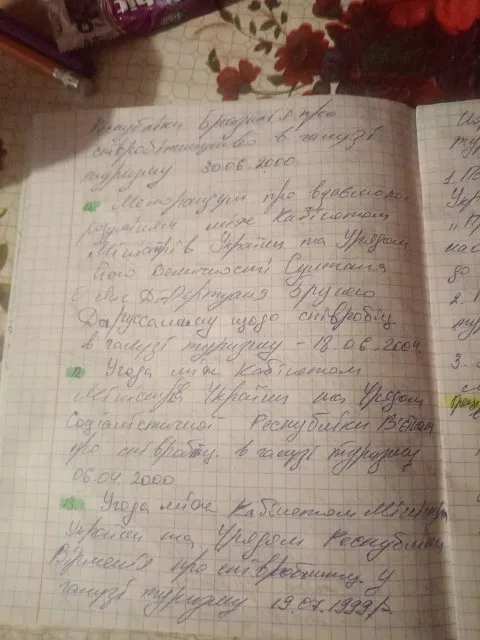 Республіки Бразилія про
співробітництво в галузі
туризму 30.06.2000
11. Меморандум про взаєморо-
зуміння між Кабінетом
Міністрів України та Урядом
Його Величності Султана
Брунею
Даруссаламу щодо співробіц.
в галузі туризму - 18.06.2004
12. Угода між Кабінетом
Міністрів України та Урядом
Соціалістичної Республіки В'єтнам
про співробітц. в галузі туризму
06.04.2000
13. Угода між Кабінетом Міністрів
України та Урядом Республіки
Вірменія про співробітниц. у
галузі туризму 19.07.1999р
1. По
Укр
„П
нас
до
2.
3.